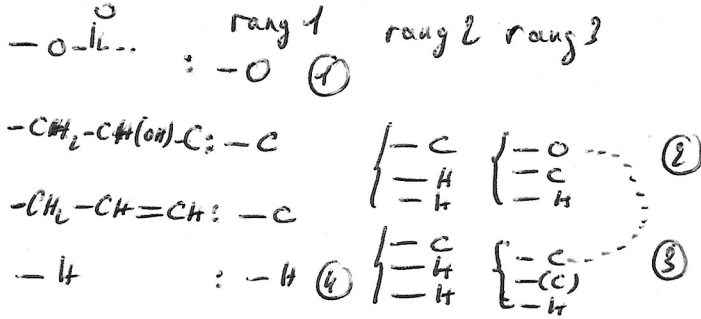 O
rang 1 rang 2 rang 3
-O-C...
: -O ①
-CH2-CH(OH)-C: -C { -C { -O ②
-H -C
-H -H
-CH2-CH=CH: -C { -C { -C ③
-H -(C)
-H -H
-H : -H ④